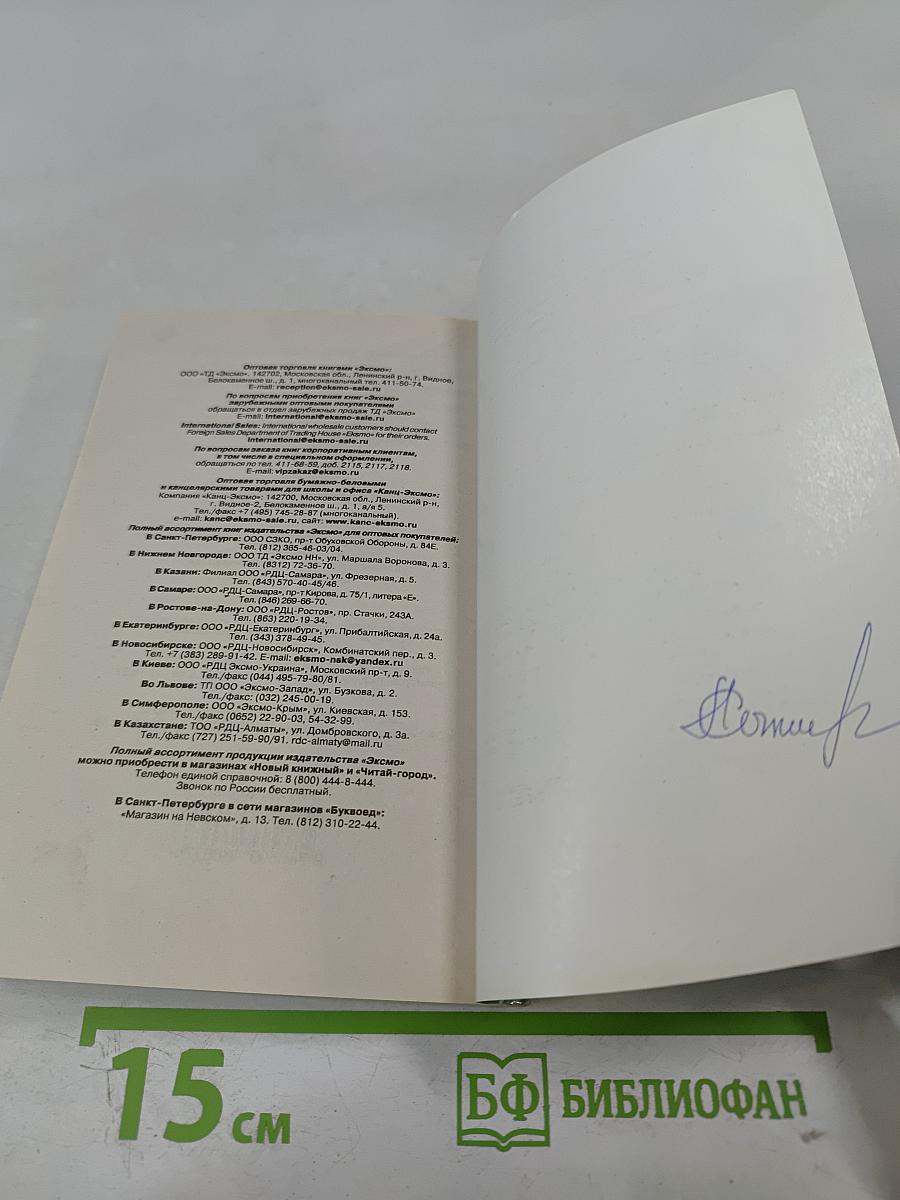 Оптовая торговля книгами «Эксмо»:
ООО «ТД «Эксмо». 142702, Московская обл., Ленинский р-н, г. Видное,
Белокаменное ш., д. 1, многоканальный тел. 411-50-74.
E-mail: reception@eksmo-sale.ru
По вопросам приобретения книг «Эксмо»
зарубежными оптовыми покупателями
обращаться в отдел зарубежных продаж ТД «Эксмо»
E-mail: international@eksmo-sale.ru
International Sales: International wholesale customers should contact
Foreign Sales Department of Trading House «Eksmo» for their orders.
international@eksmo-sale.ru
По вопросам заказа книг корпоративным клиентам,
в том числе в специальном оформлении,
обращаться по тел. 411-68-59, доб. 2115, 2117, 2118.
E-mail: vipzakaz@eksmo.ru
Оптовая торговля бумажно-беловыми
и канцелярскими товарами для школы и офиса «Канц-Эксмо»:
Компания «Канц-Эксмо»: 142700, Московская обл., Ленинский р-н,
г. Видное-2, Белокаменное ш., д. 1, а/я 5.
Тел./факс +7 (495) 745-28-87 (многоканальный).
e-mail: kanc@eksmo-sale.ru, сайт: www.kanc-eksmo.ru
Полный ассортимент книг издательства «Эксмо» для оптовых покупателей:
В Санкт-Петербурге: ООО СЗКО, пр-т Обуховской Обороны, д. 84Е.
Тел. (812) 365-46-03/04.
В Нижнем Новгороде: ООО ТД «Эксмо НН», ул. Маршала Воронова, д. 3.
Тел. (8312) 72-36-70.
В Казани: Филиал ООО «РДЦ-Самара», ул. Фрезерная, д. 5.
Тел. (843) 570-40-45/46.
В Самаре: ООО «РДЦ-Самара», пр-т Кирова, д. 75/1, литера «Е».
Тел. (846) 269-66-70.
В Ростове-на-Дону: ООО «РДЦ-Ростов», пр. Стачки, 243А.
Тел. (863) 220-19-34.
В Екатеринбурге: ООО «РДЦ-Екатеринбург», ул. Прибалтийская, д. 24а.
Тел. (343) 378-49-45.
В Новосибирске: ООО «РДЦ-Новосибирск», Комбинатский пер., д. 3.
Тел. +7 (383) 289-91-42. E-mail: eksmo-nsk@yandex.ru
В Киеве: ООО «РДЦ Эксмо-Украина», Московский пр-т, д. 9.
Тел./факс (044) 495-79-80/81.
Во Львове: ТП ООО «Эксмо-Запад», ул. Бузкова, д. 2.
Тел./факс: (032) 245-00-19.
В Симферополе: ООО «Эксмо-Крым», ул. Киевская, д. 153.
Тел./факс (0652) 22-90-03, 54-32-99.
В Казахстане: ТОО «РДЦ-Алматы», ул. Домбровского, д. 3а.
Тел./факс (727) 251-59-90/91. rdc-almaty@mail.ru
Полный ассортимент продукции издательства «Эксмо»
можно приобрести в магазинах «Новый книжный» и «Читай-город».
Телефон единой справочной: 8 (800) 444-8-444.
Звонок по России бесплатный.
В Санкт-Петербурге в сети магазинов «Буквоед»:
«Магазин на Невском», д. 13. Тел. (812) 310-22-44.
15 см
БФ БИБЛИОФАН